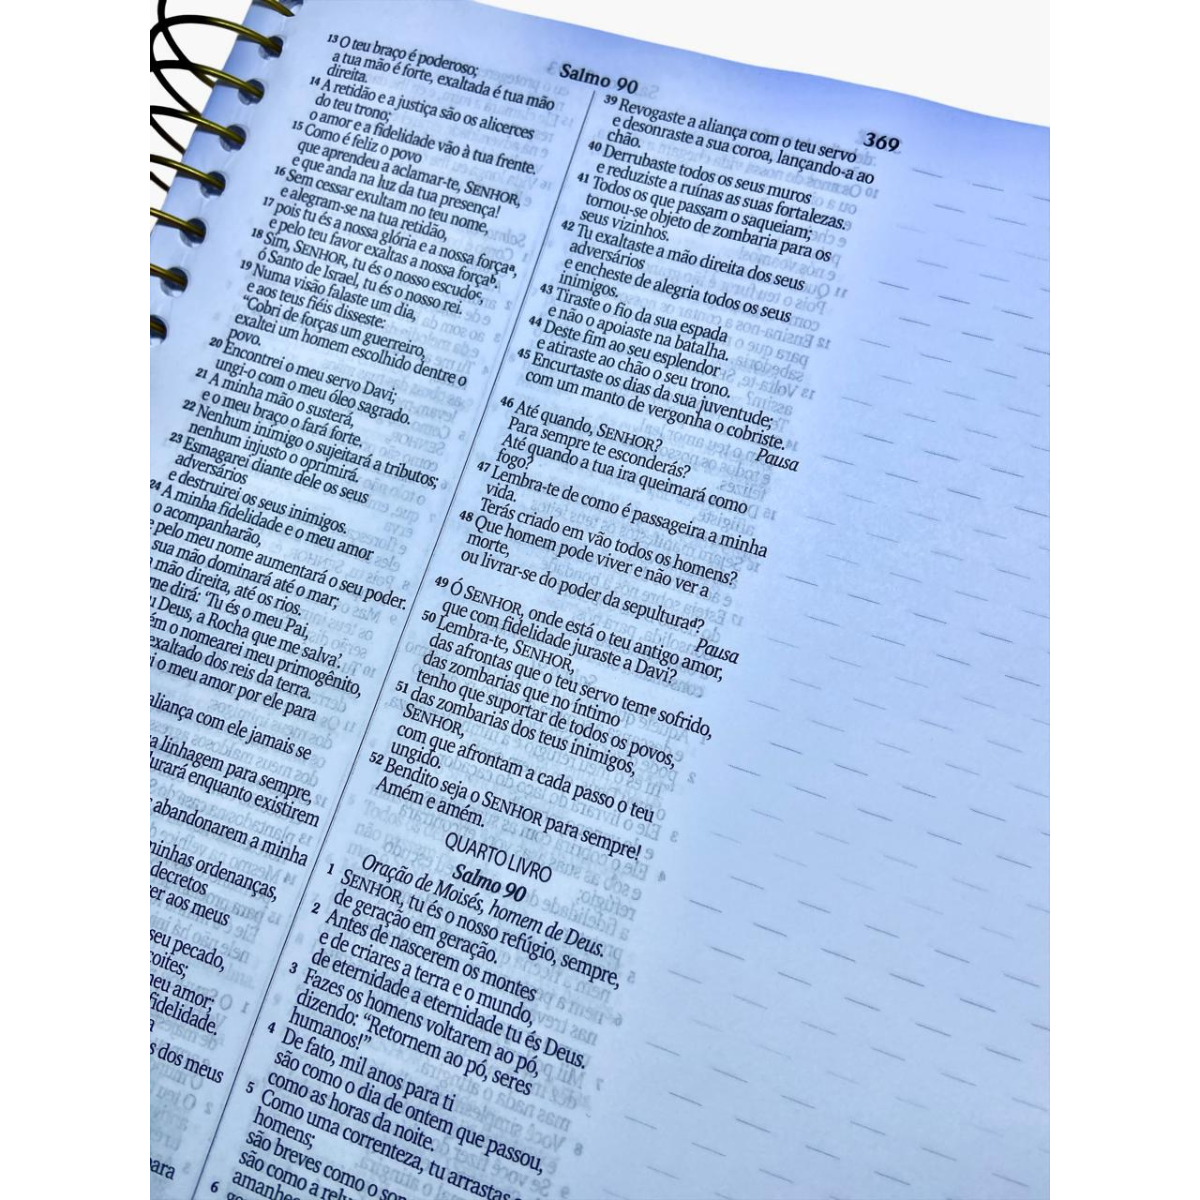 Salmo 90
369
13 O teu braço é poderoso;
a tua mão é forte, exaltada é tua mão
direita.
14 A retidão e a justiça são os alicerces
do teu trono;
o amor e a fidelidade vão à tua frente.
15 Como é feliz o povo
que aprendeu a aclamar-te, SENHOR,
e que anda na luz da tua presença!
16 Sem cessar exultam no teu nome,
e alegram-se na tua retidão,
17 pois tu és a nossa glória e a nossa forçaª,
e pelo teu favor exaltas a nossa forçaᵇ.
18 Sim, SENHOR, tu és o nosso escudoᶜ,
ó Santo de Israel, tu és o nosso rei.
19 Numa visão falaste um dia,
e aos teus fiéis disseste:
“Cobri de forças um guerreiro,
exaltei um homem escolhido dentre o
povo.
20 Encontrei o meu servo Davi;
ungi-o com o meu óleo sagrado.
21 A minha mão o susterá,
e o meu braço o fará forte.
22 Nenhum inimigo o sujeitará a tributos;
nenhum injusto o oprimirá.
23 Esmagarei diante dele os seus
adversários
e destruirei os seus inimigos.
24 A minha fidelidade e o meu amor
o acompanharão,
pelo meu nome aumentará o seu poder.
sua mão dominará até o mar;
mão direita, até os rios.
me dirá: ‘Tu és o meu Pai,
Deus, a Rocha que me salva’.
o nomearei meu primogênito,
exaltado dos reis da terra.
o meu amor por ele para
aliança com ele jamais se
linhagem para sempre,
enquanto existirem
abandonarem a minha
minhas ordenanças,
decretos
aos meus
seu pecado,
meu amor;
fidelidade.
dos meus
39 Revogaste a aliança com o teu servo
e desonraste a sua coroa, lançando-a ao
chão.
40 Derrubaste todos os seus muros
e reduziste a ruínas as suas fortalezas.
41 Todos os que passam o saqueiam;
tornou-se objeto de zombaria para os
seus vizinhos.
42 Tu exaltaste a mão direita dos seus
adversários
e encheste de alegria todos os seus
inimigos.
43 Tiraste o fio da sua espada
e não o apoiaste na batalha.
44 Deste fim ao seu esplendor
e atiraste ao chão o seu trono.
45 Encurtaste os dias da sua juventude;
com um manto de vergonha o cobriste.
Pausa
46 Até quando, SENHOR?
Para sempre te esconderás?
Até quando a tua ira queimará como
fogo?
47 Lembra-te de como é passageira a minha
vida.
Terás criado em vão todos os homens?
48 Que homem pode viver e não ver a
morte,
ou livrar-se do poder da sepulturaᵈ?
Pausa
49 Ó SENHOR, onde está o teu antigo amor,
que com fidelidade juraste a Davi?
50 Lembra-te, SENHOR,
das afrontas que o teu servo temᵉ sofrido,
das zombarias que no íntimo
tenho que suportar de todos os povos,
51 das zombarias dos teus inimigos,
SENHOR,
com que afrontam a cada passo o teu
ungido.
52 Bendito seja o SENHOR para sempre!
Amém e amém.
QUARTO LIVRO
Salmo 90
Oração de Moisés, homem de Deus.
1 SENHOR, tu és o nosso refúgio, sempre,
de geração em geração.
2 Antes de nascerem os montes
e de criares a terra e o mundo,
de eternidade a eternidade tu és Deus.
3 Fazes os homens voltarem ao pó,
dizendo: “Retornem ao pó, seres
humanos!”
4 De fato, mil anos para ti
são como o dia de ontem que passou,
como as horas da noite.
5 Como uma correnteza, tu arrastas
homens;
são breves como o
são como a
6